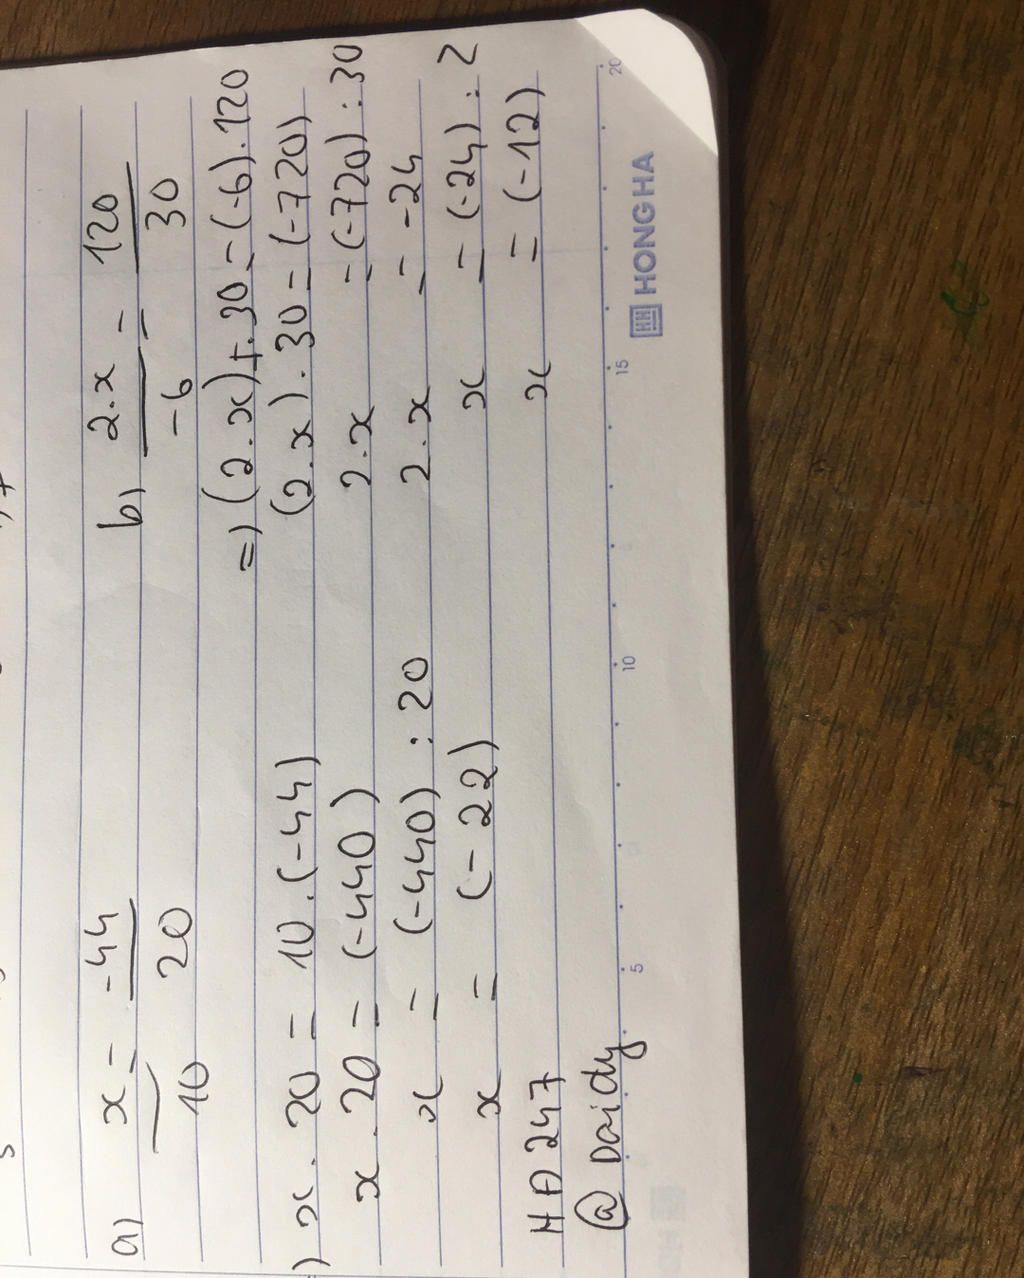 a) x/10 = -44/20
=) x . 20 = 10 . (-44)
x . 20 = (-440)
x = (-440) : 20
x = (-22)
HĐ247
@Daidy
b) 2.x/-6 = 120/30
=) (2.x) . 30 = (-6) . 120
(2.x) . 30 = (-720)
2.x = (-720) : 30
2.x = -24
x = (-24) : 2
x = (-12)
5 10 15 20
HH HONG HA